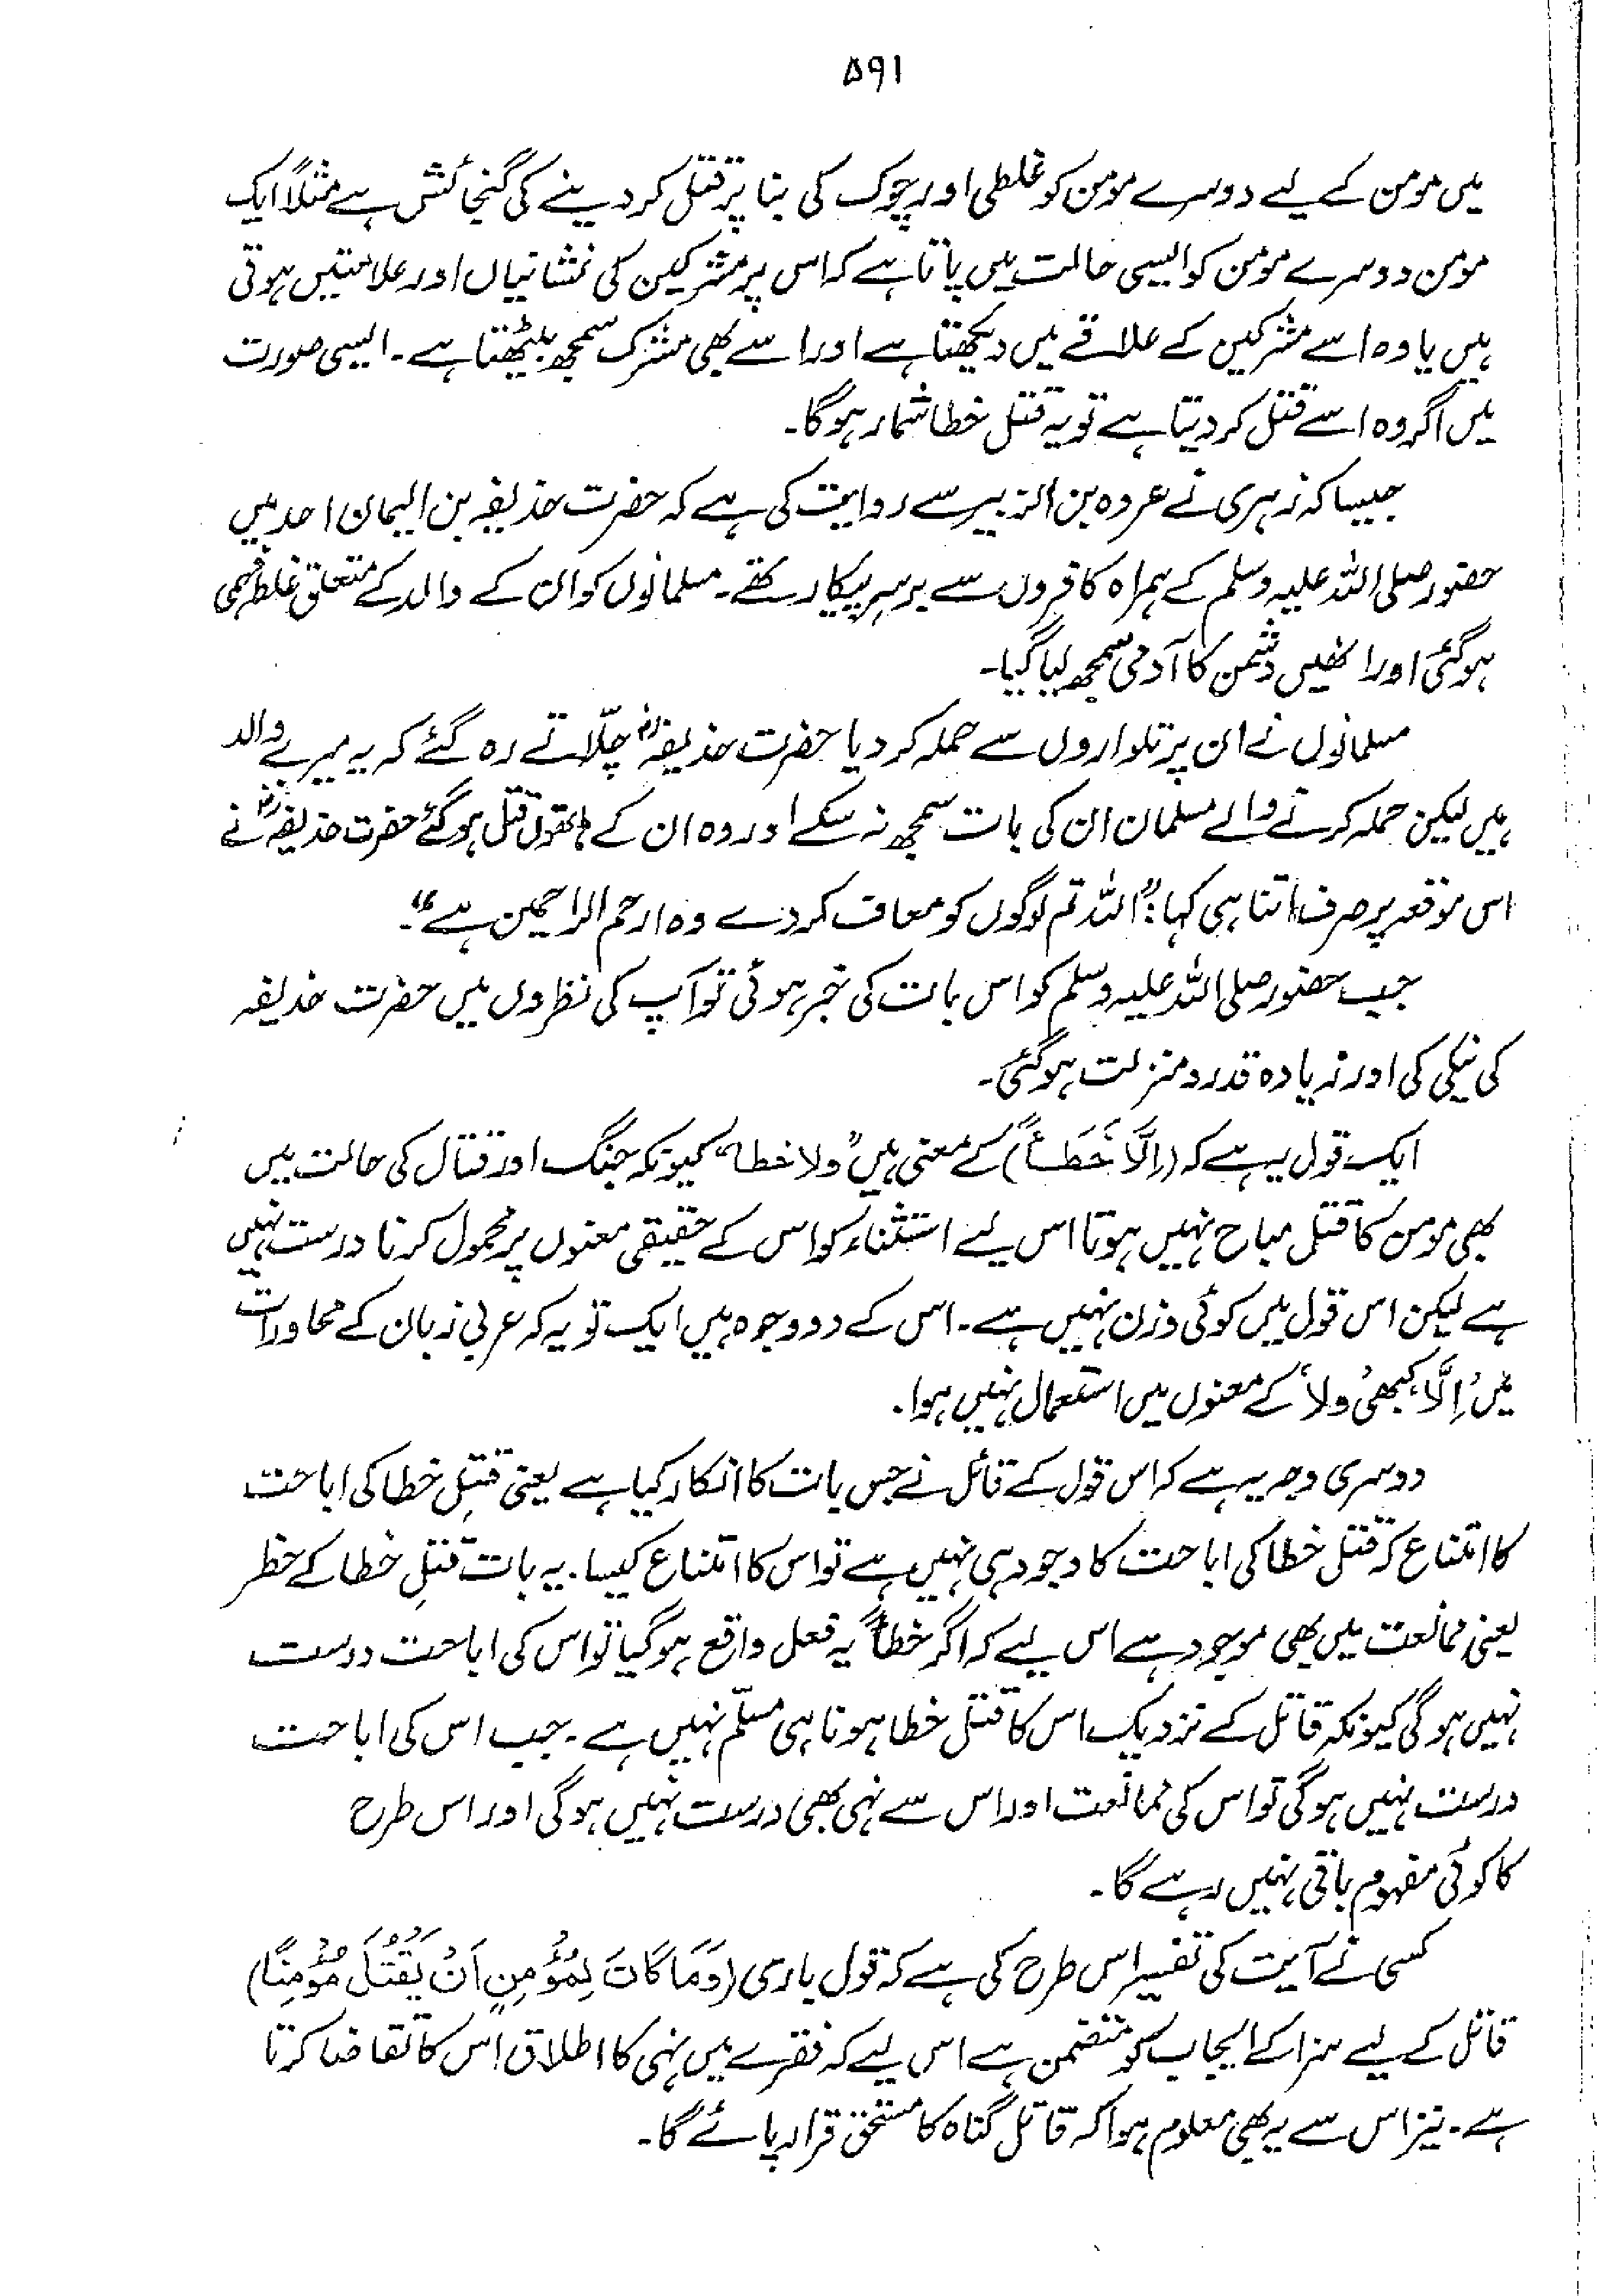 ۵۹۱
میں مومن کے لیے دوسرے مومن کو غلطی اور چوک کی بنا پر قتل کر دینے کی گنجائش ہے مثلاً ایک
مومن دوسرے مومن کو ایسی حالت میں پاتا ہے کہ اس پر مشرکین کی نشانیاں اور علامتیں ہوتی
ہیں یا وہ اسے مشرکین کے علاقے میں دیکھتا ہے اور اسے بھی مشرک سمجھ بیٹھتا ہے۔ ایسی صورت
میں اگر وہ اسے قتل کر دیتا ہے تو یہ قتل خطا شمار ہوگا۔
جیسا کہ زہری نے عروہ بن الزبیر سے روایت کی ہے کہ حضرت حذیفہ بن الیمان احد میں
حضور صلی اللہ علیہ وسلم کے ہمراہ کافروں سے برسرپیکار تھے۔ مسلمانوں کو ان کے والد کے متعلق غلط فہمی
ہوگئی اور انھیں دشمن کا آدمی سمجھ لیا گیا۔
مسلمانوں نے ان پر تلواروں سے حملہ کر دیا حضرت حذیفہؓ چلّاتے رہ گئے کہ یہ میرے والد
ہیں لیکن حملہ کرنے والے مسلمان ان کی بات سمجھ نہ سکے اور وہ ان کے ہاتھوں قتل ہوگئے حضرت حذیفہؓ نے
اس موقعہ پر صرف اتنا ہی کہا: "اللہ تم لوگوں کو معاف کردے وہ ارحم الراحمین ہے"۔
جب حضور صلی اللہ علیہ وسلم کو اس بات کی خبر ہوئی تو آپ کی نظروں میں حضرت حذیفہ
کی نیکی کی اور زیادہ قدر و منزلت ہوگئی۔
ایک قول یہ ہے کہ (اِلَّا خَطَـأً) کے معنی ہیں "ولا خطا" کیونکہ جنگ اور قتال کی حالت میں
بھی مومن کا قتل مباح نہیں ہوتا اس لیے استثناء کو اس کے حقیقی معنوں پر محمول کرنا درست نہیں
ہے لیکن اس قول میں کوئی وزن نہیں ہے۔ اس کے دو وجوہ ہیں ایک تو یہ کہ عربی زبان کے محاورات
میں 'اِلَّا' کبھی 'ولا' کے معنوں میں استعمال نہیں ہوا۔
دوسری وجہ یہ ہے کہ اس قول کے قائل نے جس بات کا انکار کیا ہے یعنی قتلِ خطا کی اباحت
کا امتناع کہ قتل خطا کی اباحت کا وجود ہی نہیں ہے تو اس کا امتناع کیسا۔ یہ بات قتلِ خطا کے حظر
یعنی ممانعت میں بھی موجود ہے اس لیے کہ اگر خطاً یہ فعل واقع ہوگیا تو اس کی اباحت درست
نہیں ہوگی کیونکہ قاتل کے نزدیک اس کا قتل خطا ہونا ہی مسلّم نہیں ہے۔ جب اس کی اباحت
درست نہیں ہوگی تو اس کی ممانعت اور اس سے نہی بھی درست نہیں ہوگی اور اس طرح
کا کوئی مفہوم باقی نہیں رہے گا۔
کسی نے آیت کی تفسیر اس طرح کی ہے کہ قول باری (وَمَا كَانَ لِمُؤْمِنٍ اَنْ يَّقْتُلَ مُؤْمِنًا)
قاتل کے لیے سزا کے ایجاب کو متضمن ہے اس لیے کہ فقرے میں نہی کا اطلاق اس کا تقاضا کرتا
ہے۔ نیز اس سے یہ بھی معلوم ہوا کہ قاتل گناہ کا مستحق قرار پائے گا۔